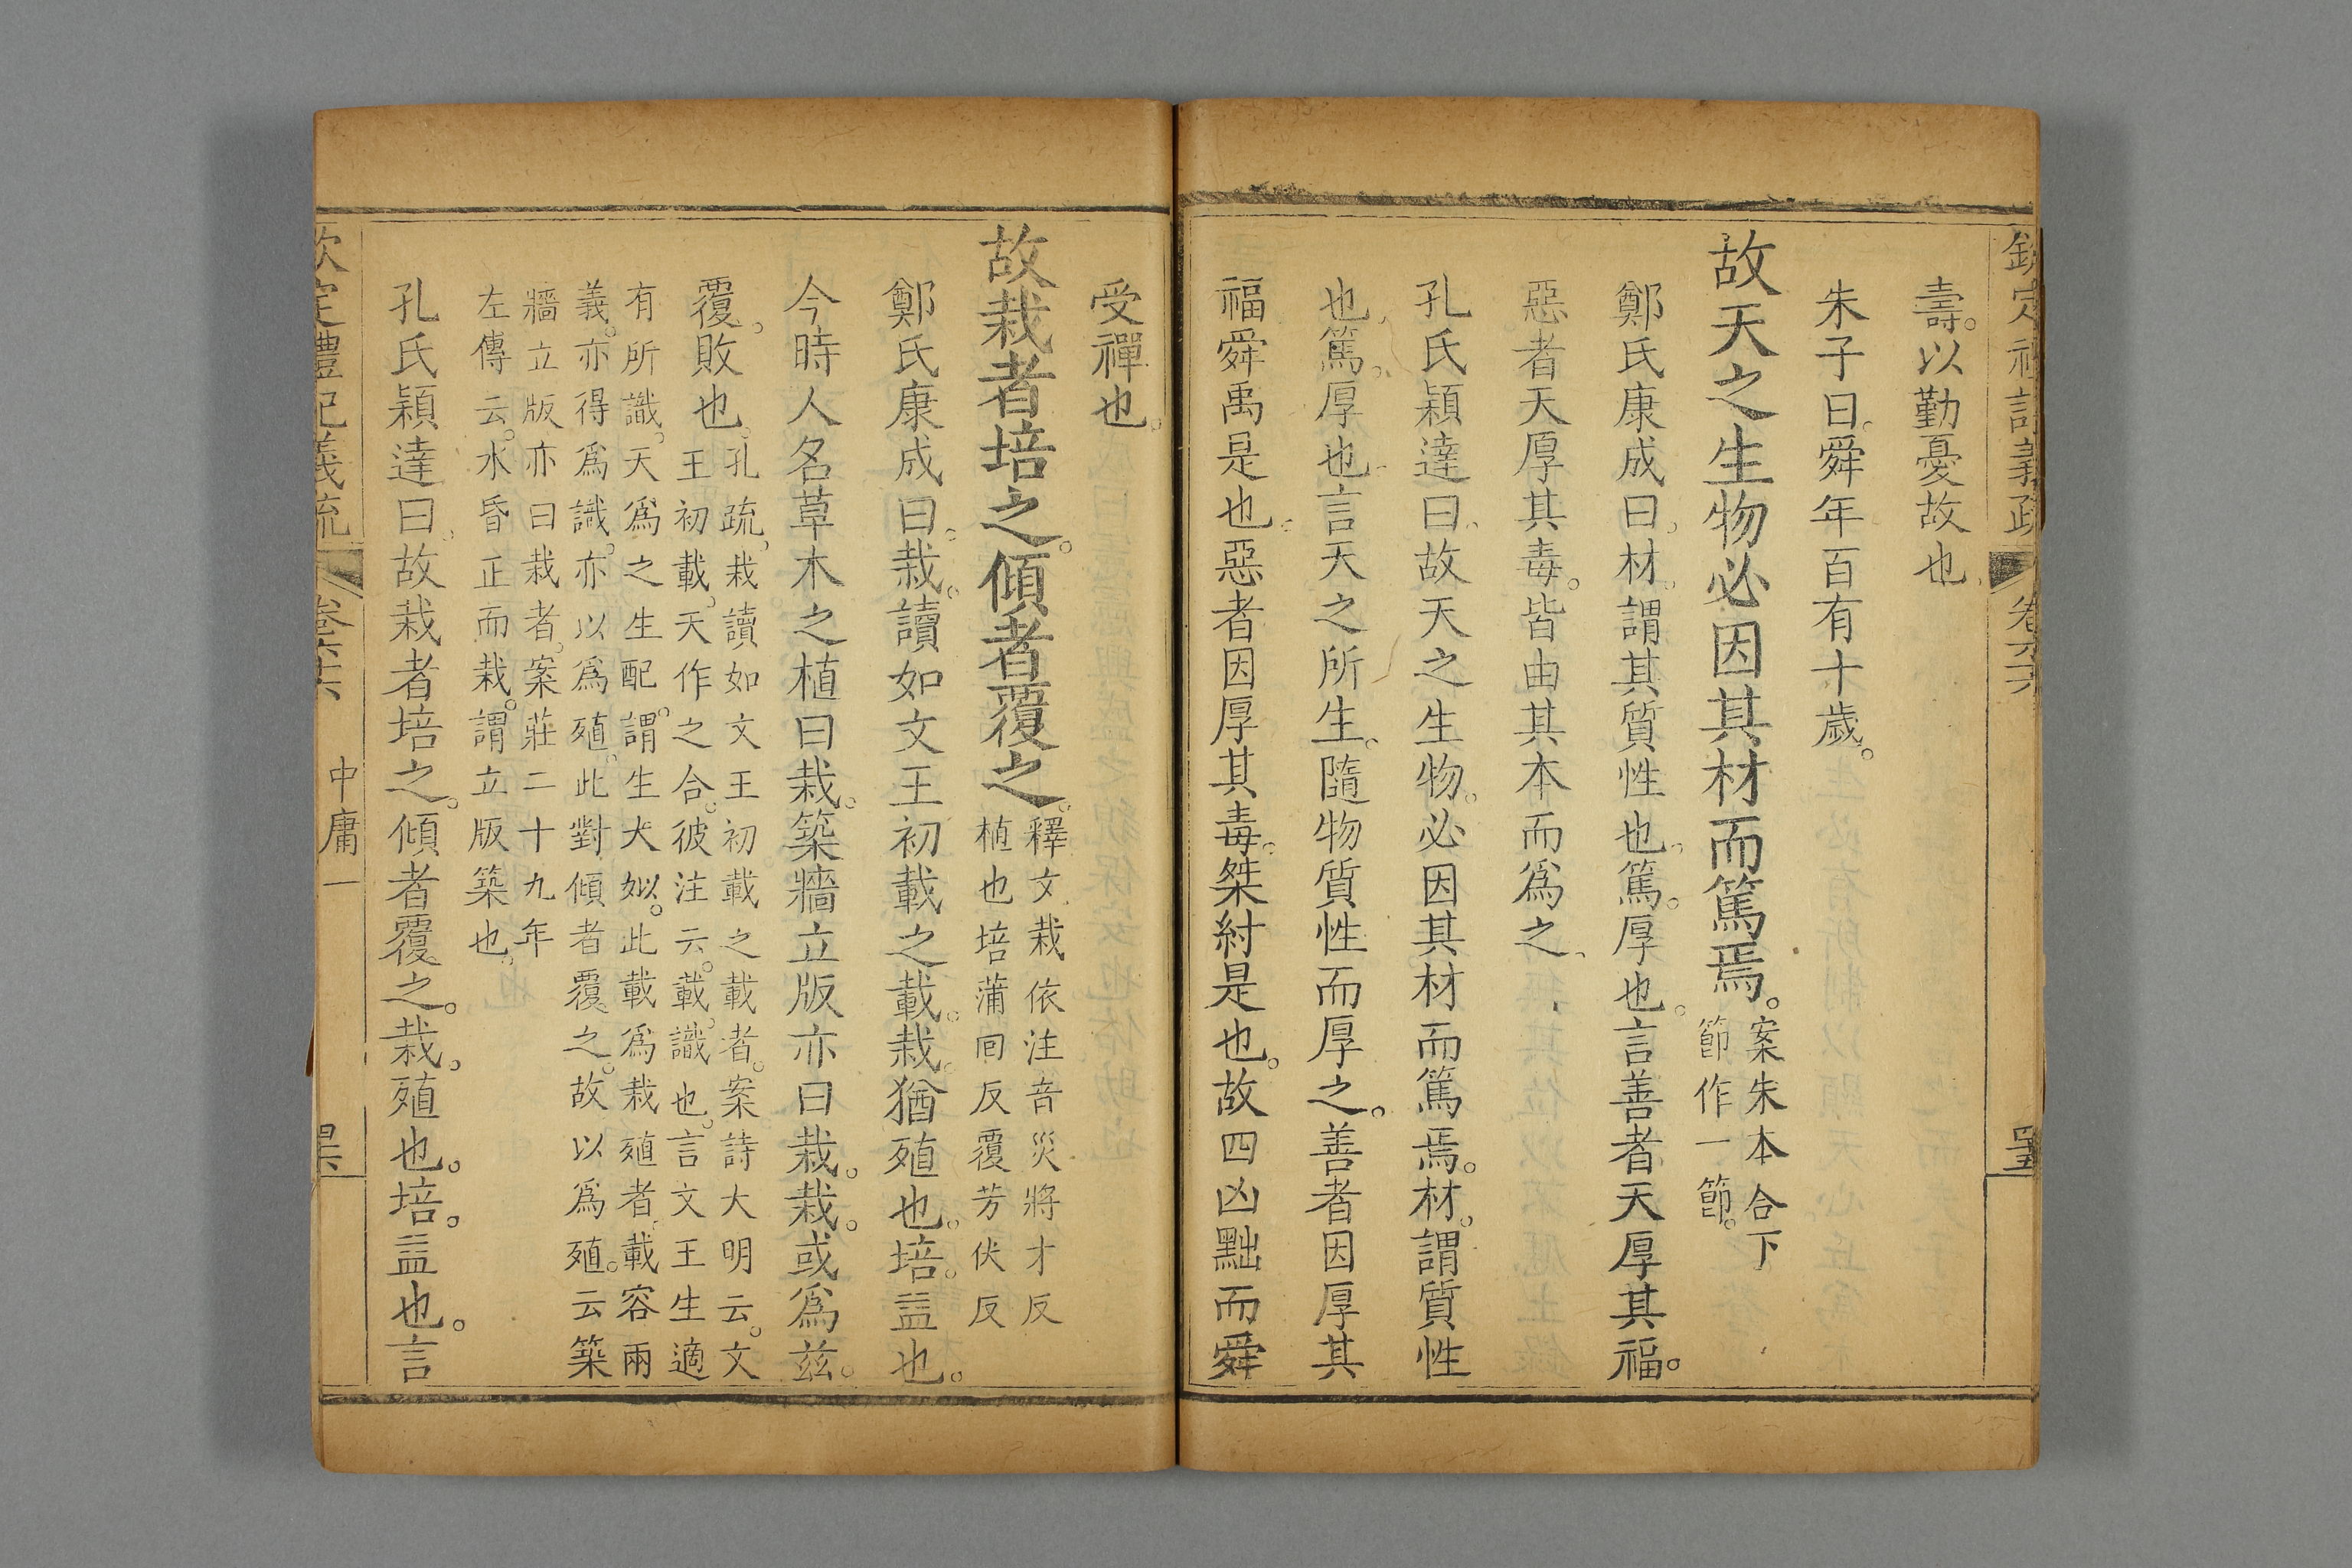 欽定禮記義疏 卷六六
壽。以勤憂故也。
朱子曰。舜年百有十歲。
故天之生物必因其材而篤焉。案朱本合下
節作一節。
鄭氏康成曰。材。謂其質性也。篤。厚也。言善者天厚其福。
惡者天厚其毒。皆由其本而爲之。
孔氏穎達曰。故天之生物。必因其材而篤焉。材。謂質性
也。篤。厚也。言天之所生。隨物質性而厚之。善者因厚其
福。舜禹是也。惡者因厚其毒。桀紂是也。故四凶黜而舜
受禪也。
故栽者培之。傾者覆之。釋文栽依注音災將才反
植也培蒲回反覆芳伏反
鄭氏康成曰。栽。讀如文王初載之載。栽。猶殖也。培。益也。
今時人名草木之植曰栽。築牆立版亦曰栽。栽。或爲茲。
覆。敗也。孔疏。栽讀如文王初載之載者。案詩大明云。文
王初載。天作之合。彼注云。載。識也。言文王生適
有所識。天爲之生配。謂生大姒。此載爲栽殖者。載容兩
義。亦得爲識。亦以爲殖。此對傾者覆之。故以爲殖。云築
牆立版亦曰栽者。案莊二十九年
左傳云。水昏正而栽。謂立版築也。
孔氏穎達曰。故栽者培之。傾者覆之。栽。殖也。培。益也。言
欽定禮記義疏 卷六六 中庸一